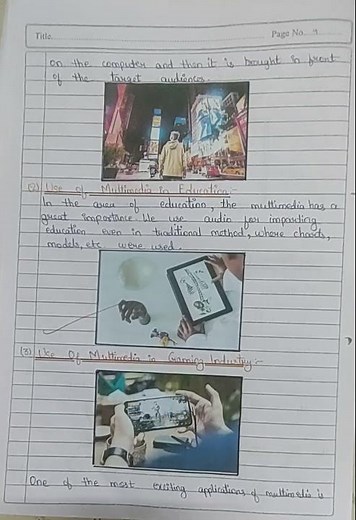 Title
Page No. 9
on the computer and then it is brought in front
of the target audiences.
(2) Use of Multimedia in Education:-
In the area of education, the multimedia has a
great importance. We use audio for imparding
education even in traditional method, where charts,
models, etc. were used.
(3) Use Of Multimedia in Gaming Industry:-
One of the most exciting applications of multimedia is